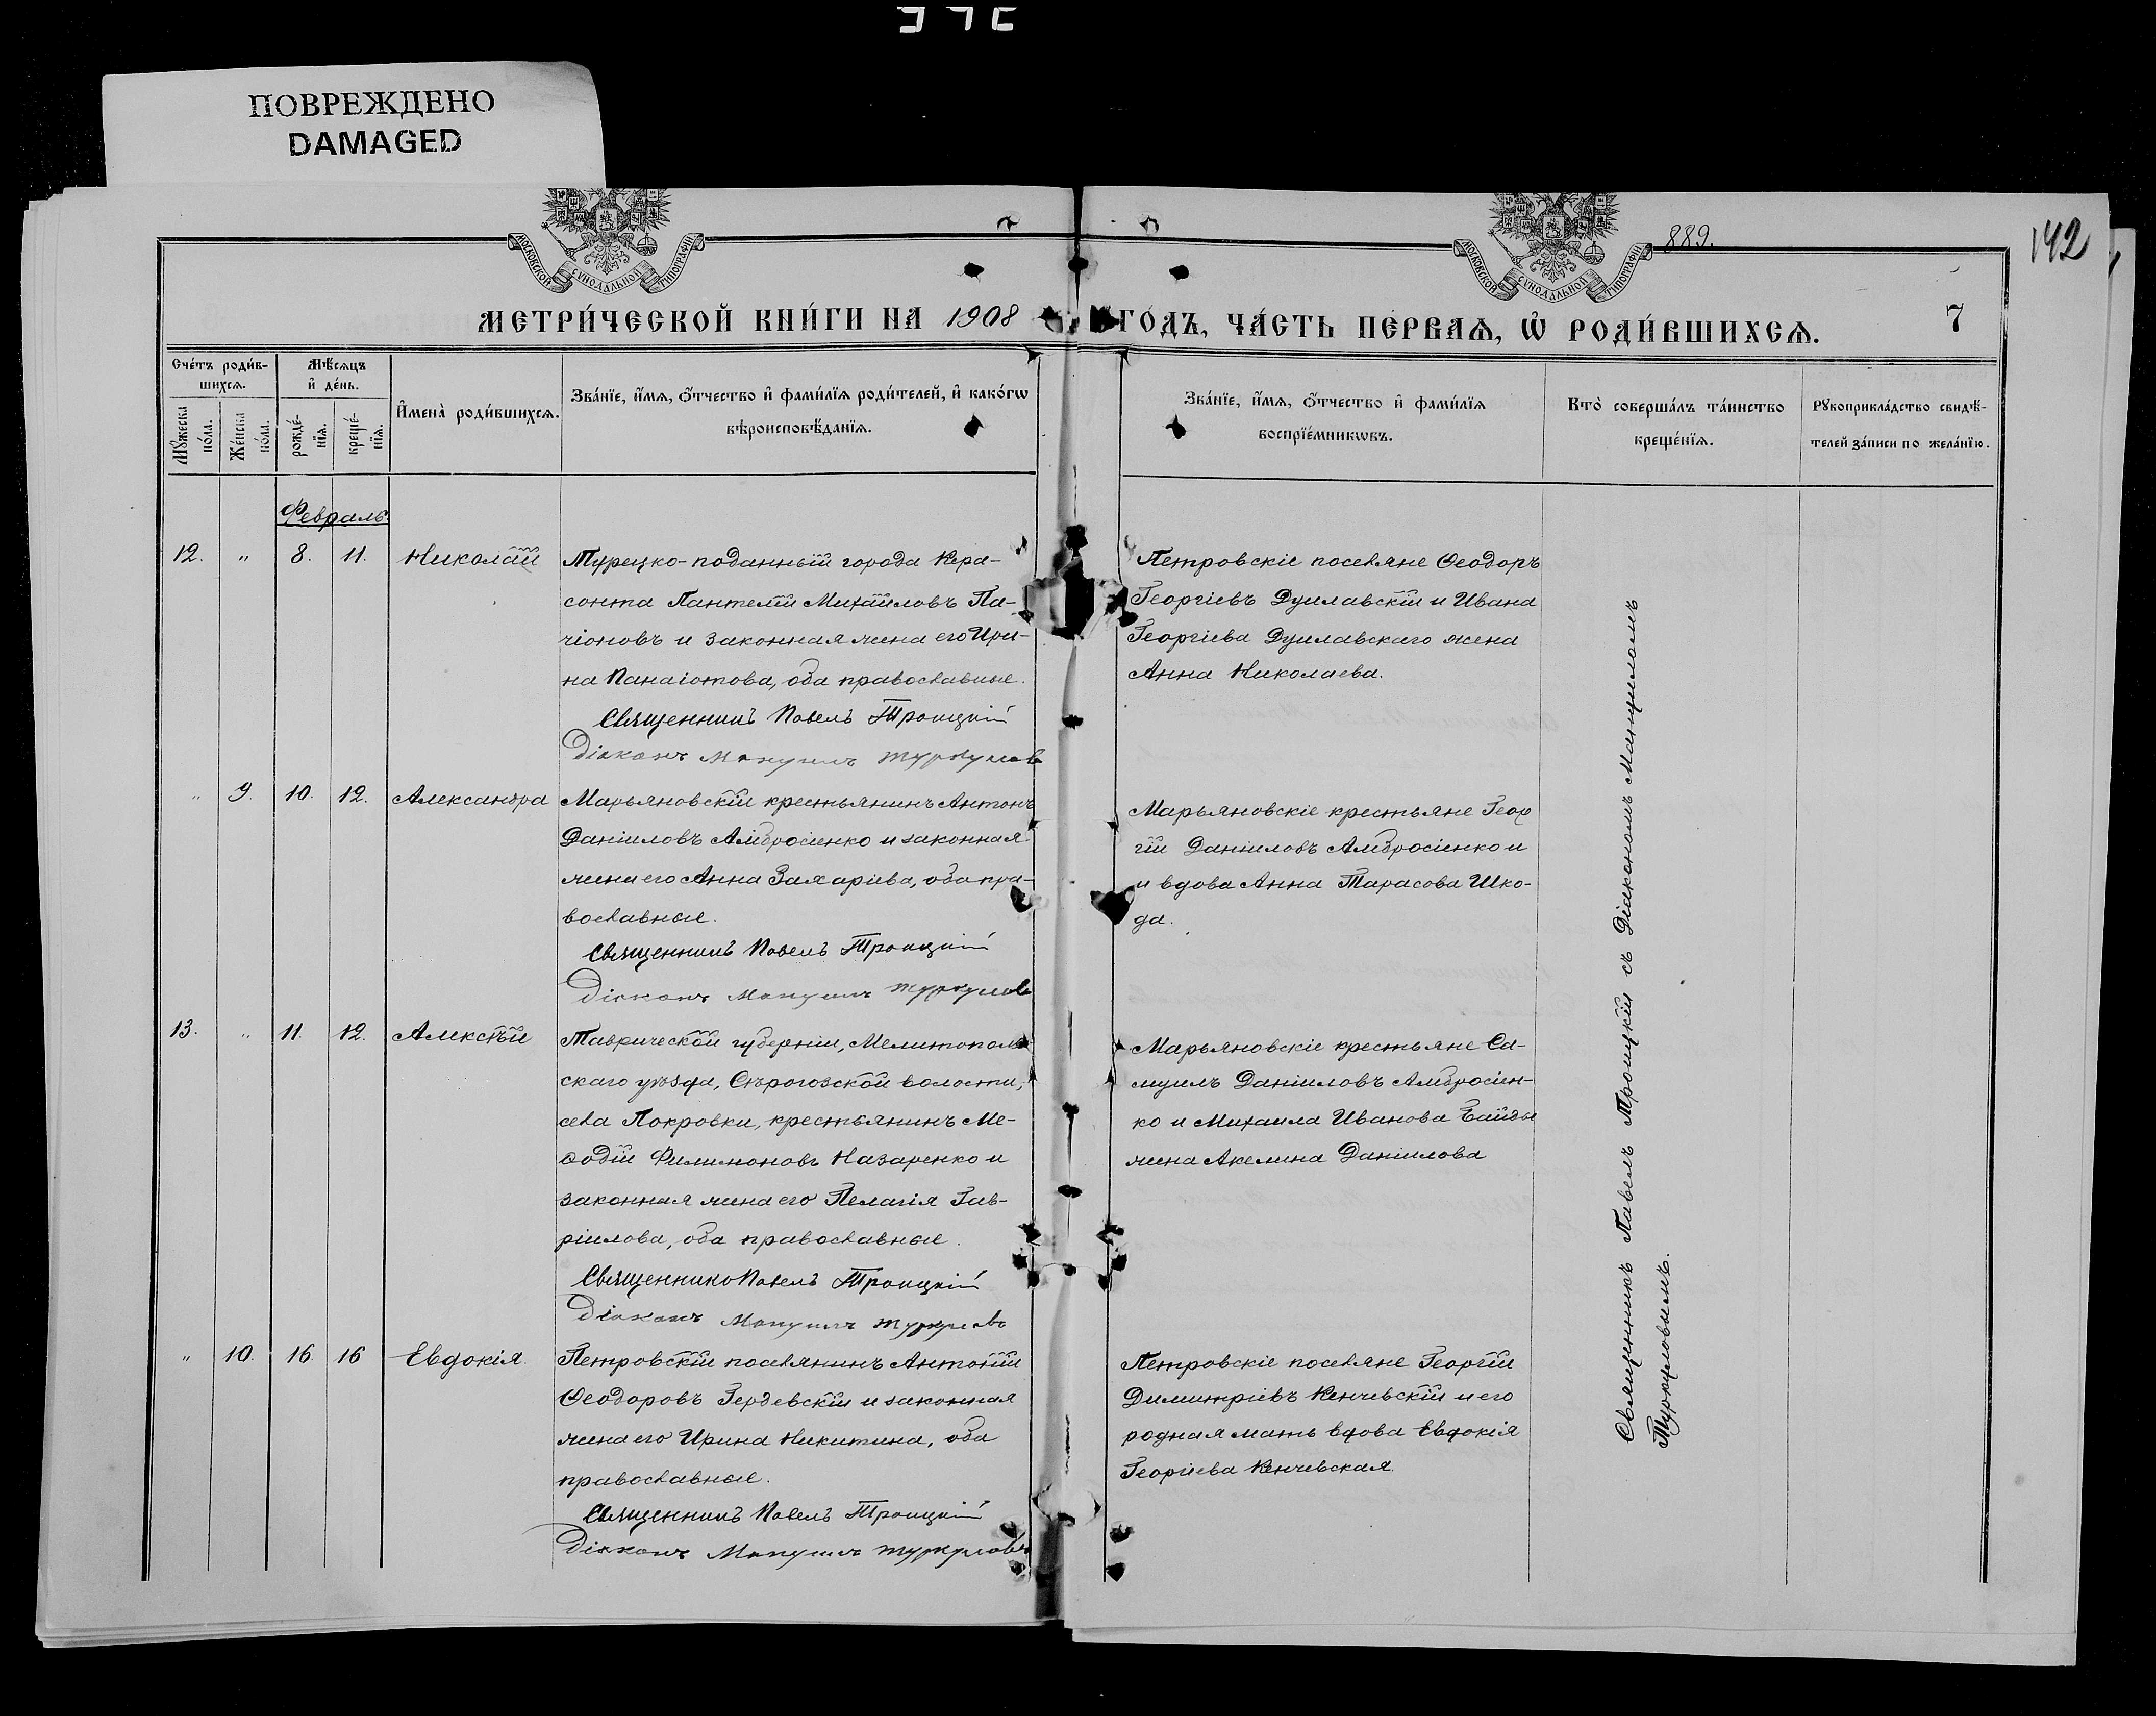 ПОВРЕЖДЕНО
DAMAGED
МОСКОВСКОЙ СѴНОДАЛЬНОЙ ТИПОГРАФІИ
МОСКОВСКОЙ СѴНОДАЛЬНОЙ ТИПОГРАФІИ
889.
142
МЕТРИ́ЧЕСКОЙ КНИ́ГИ НА 1908
ГО́ДЪ, ЧА́СТЬ ПЕ́РВАѦ, Ѡ҆ РОДИ́ВШИХСѦ.
7
Сче́тъ роди́в-
шихсѧ.
Мѣ́сѧцъ
и҆ де́нь.
Мꙋ́жеска
по́ла.
Же́нска
по́ла.
рожде́-
нїѧ.
креще́-
нїѧ.
И҆мена̀ роди́вшихсѧ.
Зва́нїе, и҆́мѧ, ѻ҆́тчество и҆ фами́лїѧ роди́телей, и҆ како́гѡ
вѣроисповѣ́данїѧ.
Зва́нїе, и҆́мѧ, ѻ҆́тчество и҆ фами́лїѧ
воспрїе́мникѡвъ.
Кто̀ соверша́лъ та́инство
креще́нїѧ.
Рꙋкоприкла́дство свидѣ́-
телей за́писи по жела́нїю.
Февраль
12. " 8. 11. Николай
Турецко-поданный города Кера-
сонта Пантелій Михайловъ Па-
чіоновъ и законная жена его Ири-
на Панаіотова, оба православные.
Священникъ Павелъ Троицкій
Діаконъ Мануилъ Туркулов
Петровскіе поселяне Ѳеодоръ
Георгіевъ Душлавскій и Ивана
Георгіева Душлавскаго жена
Анна Николаева.
" 9. 10. 12. Александра
Марьяновскій крестьянинъ Антонъ
Даніиловъ Амбросіенко и законная
жена его Анна Захаріева, оба пра-
вославные.
Священникъ Павелъ Троицкій
Діаконъ Мануилъ Туркулов
Марьяновскіе крестьяне Геор
гій Даніиловъ Амбросіенко и
и вдова Анна Тарасова Шко-
да.
13. " 11. 12. Алексѣй
Таврической губерніи, Мелитополь
скаго уѣзда, Сѣрогозской волости,
села Покровки, крестьянинъ Ме-
ѳодій Филимоновъ Назаренко и
законная жена его Пелагія Гав-
ріилова, оба православные.
Священникъ Павелъ Троицкій
Діаконъ Мануилъ Туркуловъ
Марьяновскіе крестьяне Са-
муилъ Даніиловъ Амбросіен-
ко и Михаила Иванова Байды
жена Акелина Даніилова
" 10. 16. 16 Евдокія.
Петровскій поселянинъ Антоній
Ѳеодоровъ Гердевскій и законная
жена его Ирина Никитина, оба
православные.
Священникъ Павелъ Троицкій
Діаконъ Мануилъ Туркуловъ
Петровскіе поселяне Георгій
Димитріевъ Кенчевскій и его
родная мать вдова Евдокія
Георгіева Кенчевская.
Священникъ Павелъ Троицкій съ Діакономъ Мануиломъ
Туркуловымъ.